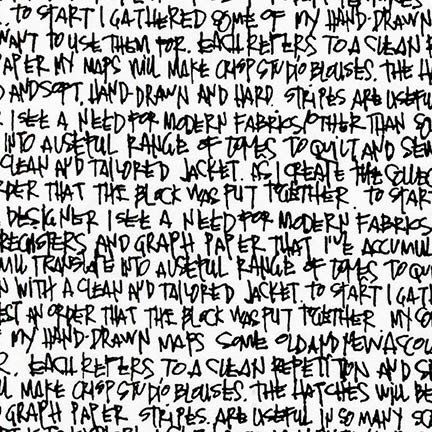 . TO START I GATHERED SOME OF MY HAND-DRAWN
WANT TO USE THEM FOR. EACH REFERS TO A CLEAN
PAPER MY MAPS WILL MAKE CRISP STUDIO BLOUSES. THE HA
AND SOFT. HAND-DRAWN AND HARD STRIPES ARE USEFUL
I SEE A NEED FOR MODERN FABRICS/OTHER THAN SO
INTO A USEFUL RANGE OF TONES TO QUILT AND SEW
CLEAN AND TAILORED JACKET. AS I CREATE THE COLLEC
ORDER THAT THE BLOCK WAS PUT TOGETHER. TO START
DESIGNER I SEE A NEED FOR MODERN FABRICS
AND GRAPH PAPER THAT I'VE ACCUMUL
WILL TRANSLATE INTO A USEFUL RANGE OF TONES TO QU
N WITH A CLEAN AND TAILORED JACKET. TO START I GATH
EST AN ORDER THAT THE BLOCK WAS PUT TOGETHER MY SO
MY HAND-DRAWN MAPS SOME OLD AND NEW
R. EACH REFERS TO A CLEAN REPETITION AND S
LL MAKE CRISP STUDIO BLOUSES. THE HATCHES WILL BE
GRAPH PAPER STRIPES. ARE USEFUL IN SO MANY SC